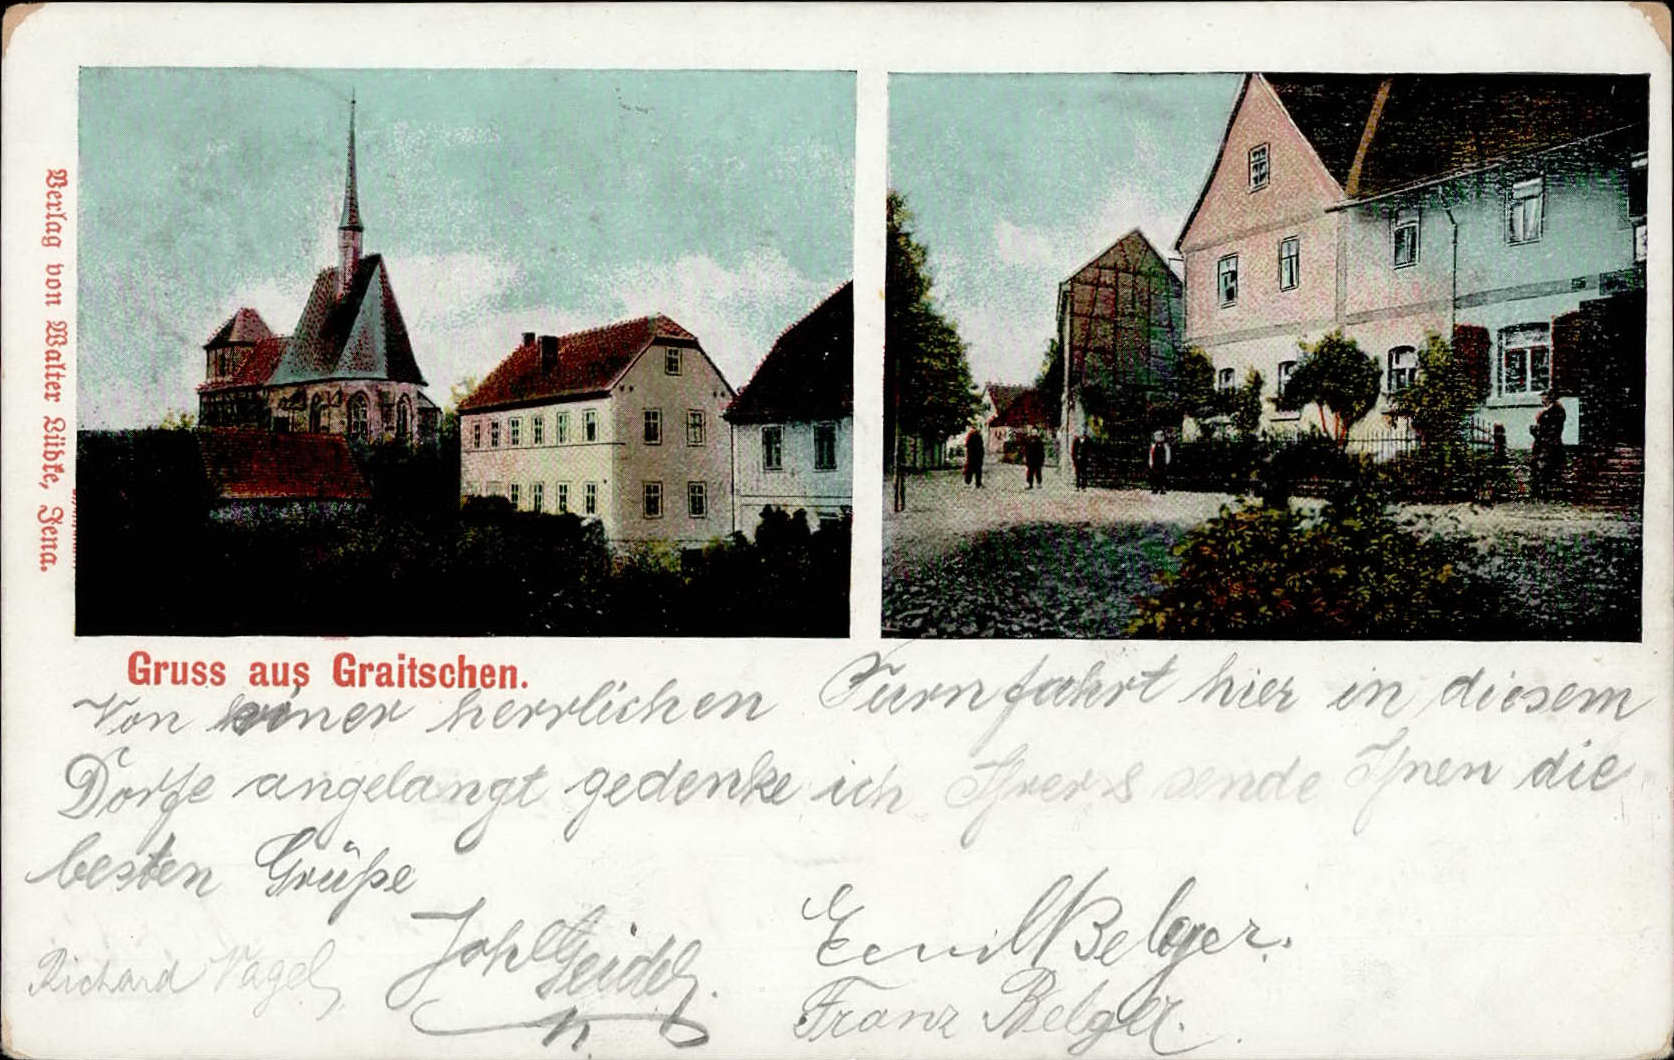 Verlag von Walter Lübke, Jena.
Gruss aus Graitschen.
Von einer herrlichen Turnfahrt hier in diesem
Dorfe angelangt gedenke ich Ihrer & sende Ihnen die
besten Grüße
Richard Vogel, Seidel. Emil Belger.
Franz Belger.